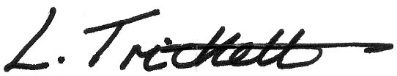 L. Trickett